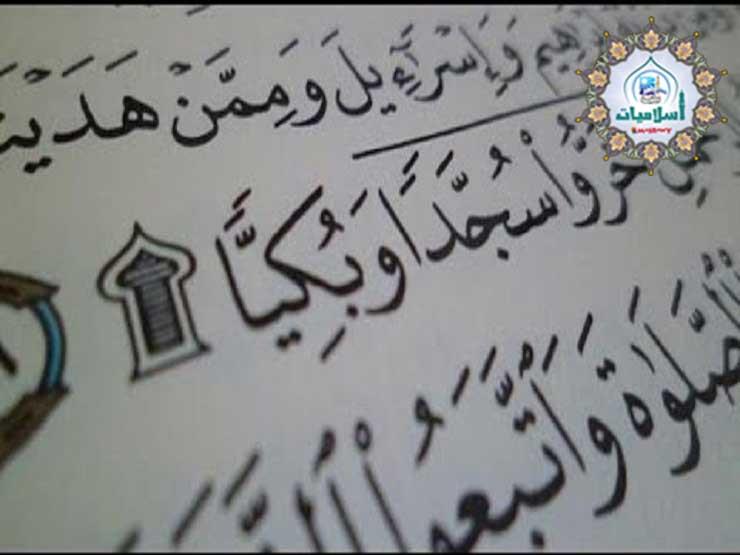 وَإِسْرَٰٓءِيلَ وَمِمَّنْ هَدَيْنَ
خَرُّوا۟ سُجَّدًا وَبُكِيًّا ۩
ٱلصَّلَوٰةَ وَٱتَّبَعُوا۟
أسلاميات